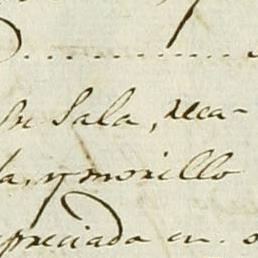 de Sala, reca-
la, y morillo
apreciada en.